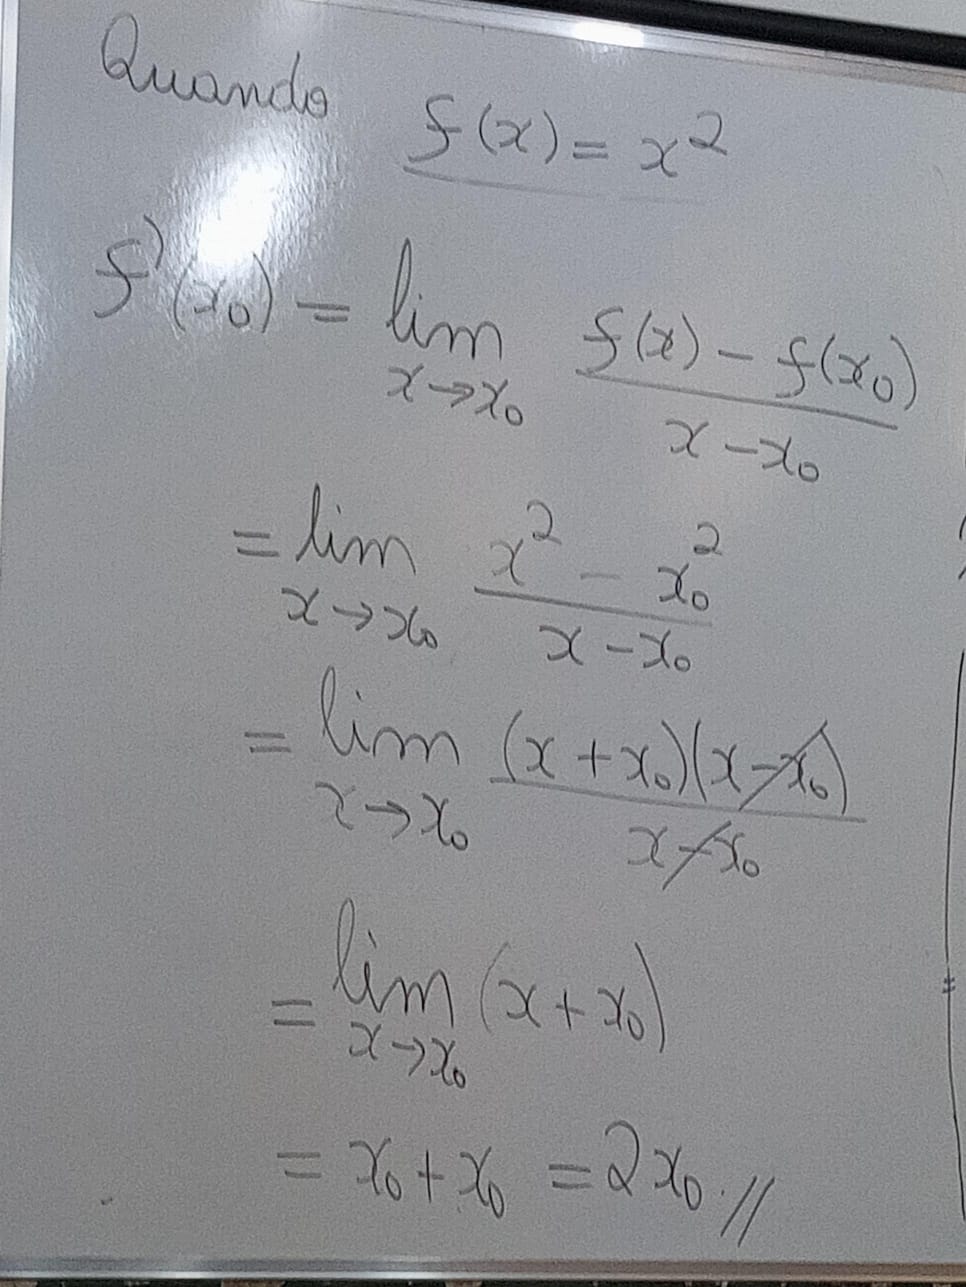 Quando f(x) = x²
f'(x₀) = lim x→x₀ (f(x) − f(x₀))/(x − x₀)
= lim x→x₀ (x² − x₀²)/(x − x₀)
= lim x→x₀ ((x + x₀)(x − x₀))/(x − x₀)
= lim x→x₀ (x + x₀)
= x₀ + x₀ = 2x₀.//